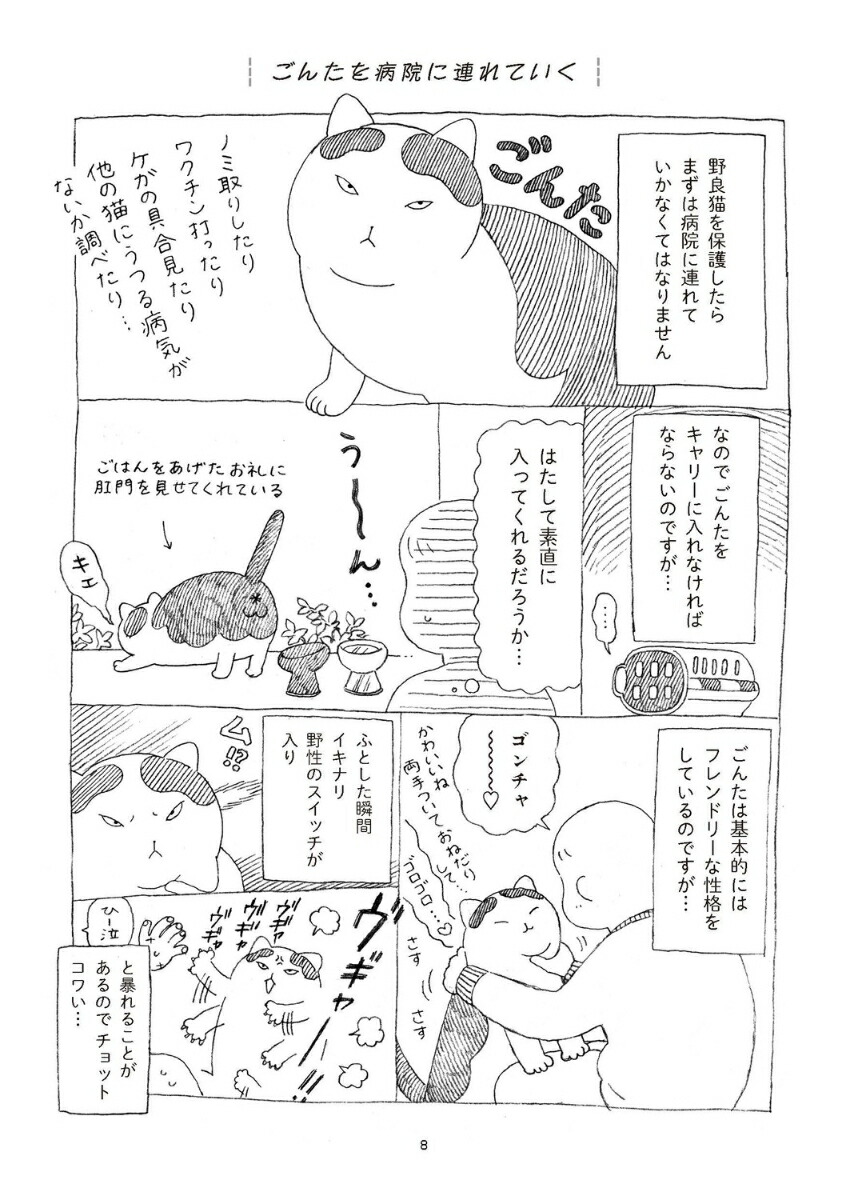 ごんたを病院に連れていく
野良猫を保護したら
まずは病院に連れて
いかなくてはなりません
ごんた
ノミ取りしたり
ワクチン打ったり
ケガの具合見たり
他の猫にうつる病気が
ないか調べたり…
なのでごんたを
キャリーに入れなければ
ならないのですが…
……
はたして素直に
入ってくれるだろうか…
う〜〜ん…
ごはんをあげたお礼に
肛門を見せてくれている
キェ
ごんたは基本的には
フレンドリーな性格を
しているのですが…
ゴンチャ
〜〜〜♡
かわいいね
両手ついておねだり
して…
ゴロゴロ…♡
さす
さす
ふとした瞬間
イキナリ
野性のスイッチが
入り
ム!?
ヴギャーー!!
ヴギャ
ヴギャ
ヴギャ
ひー泣
と暴れることが
あるのでチョット
コワい…
8